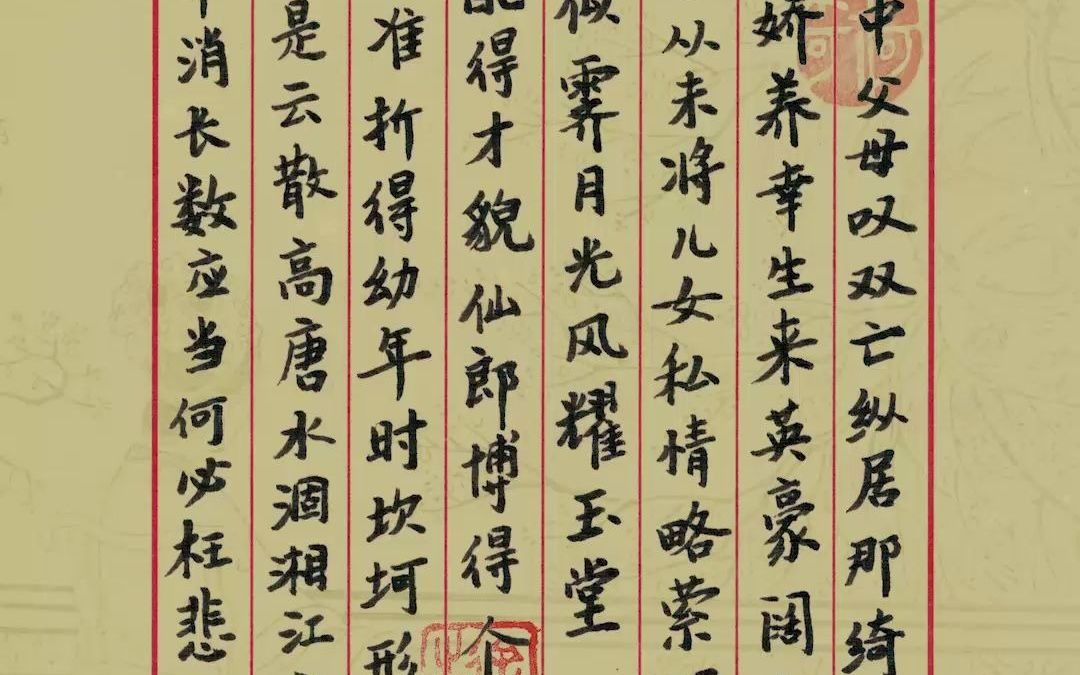 中父母叹双亡纵居那绮
娇养幸生来英豪阔
从未将儿女私情略萦
似霁月光风耀玉堂
得才貌仙郎博得个
准折得幼年时坎坷形
是云散高唐水涸湘江
消长数应当何必枉悲